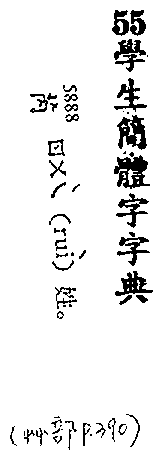 55學生簡體字字典
S888
芮 ㄖㄨㄟˋ (ruì) 姓。
(艸部P.390)